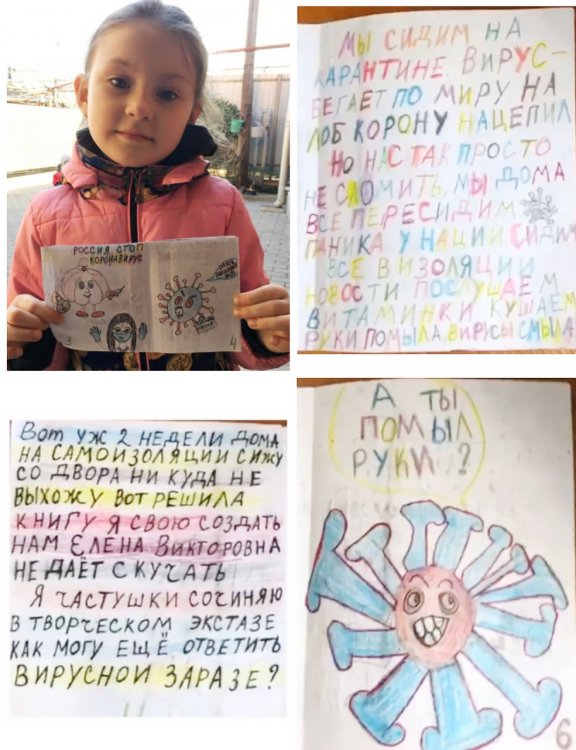 РОССИЯ СТОП
КОРОНАВИРУС
3
4
МЫ СИДИМ НА
КАРАНТИНЕ. ВИРУС-
БЕГАЕТ ПО МИРУ НА
ЛОБ КОРОНУ НАЦЕПИЛ
НО НАС ТАК ПРОСТО
НЕ СЛОМИТЬ. МЫ ДОМА
ВСЕ ПЕРЕСИДИМ
ПАНИКА У НАЦИИ. СИДИМ
ВСЕ В ИЗОЛЯЦИИ
НОВОСТИ ПОСЛУШАЕМ
ВИТАМИНКИ КУШАЕМ
РУКИ ПОМЫЛА, ВИРУСЫ СМЫЛА.
ВОТ УЖ 2 НЕДЕЛИ ДОМА
НА САМОИЗОЛЯЦИИ СИЖУ
СО ДВОРА НИ КУДА НЕ
ВЫХОЖУ ВОТ РЕШИЛА
КНИГУ Я СВОЮ СОЗДАТЬ
НАМ ЕЛЕНА ВИКТОРОВНА
НЕ ДАЁТ СКУЧАТЬ
Я ЧАСТУШКИ СОЧИНЯЮ
В ТВОРЧЕСКОМ ЭКСТАЗЕ
КАК МОГУ ЕЩЁ ОТВЕТИТЬ
ВИРУСНОЙ ЗАРАЗЕ?
А ТЫ
ПОМЫЛ
РУКИ?
6